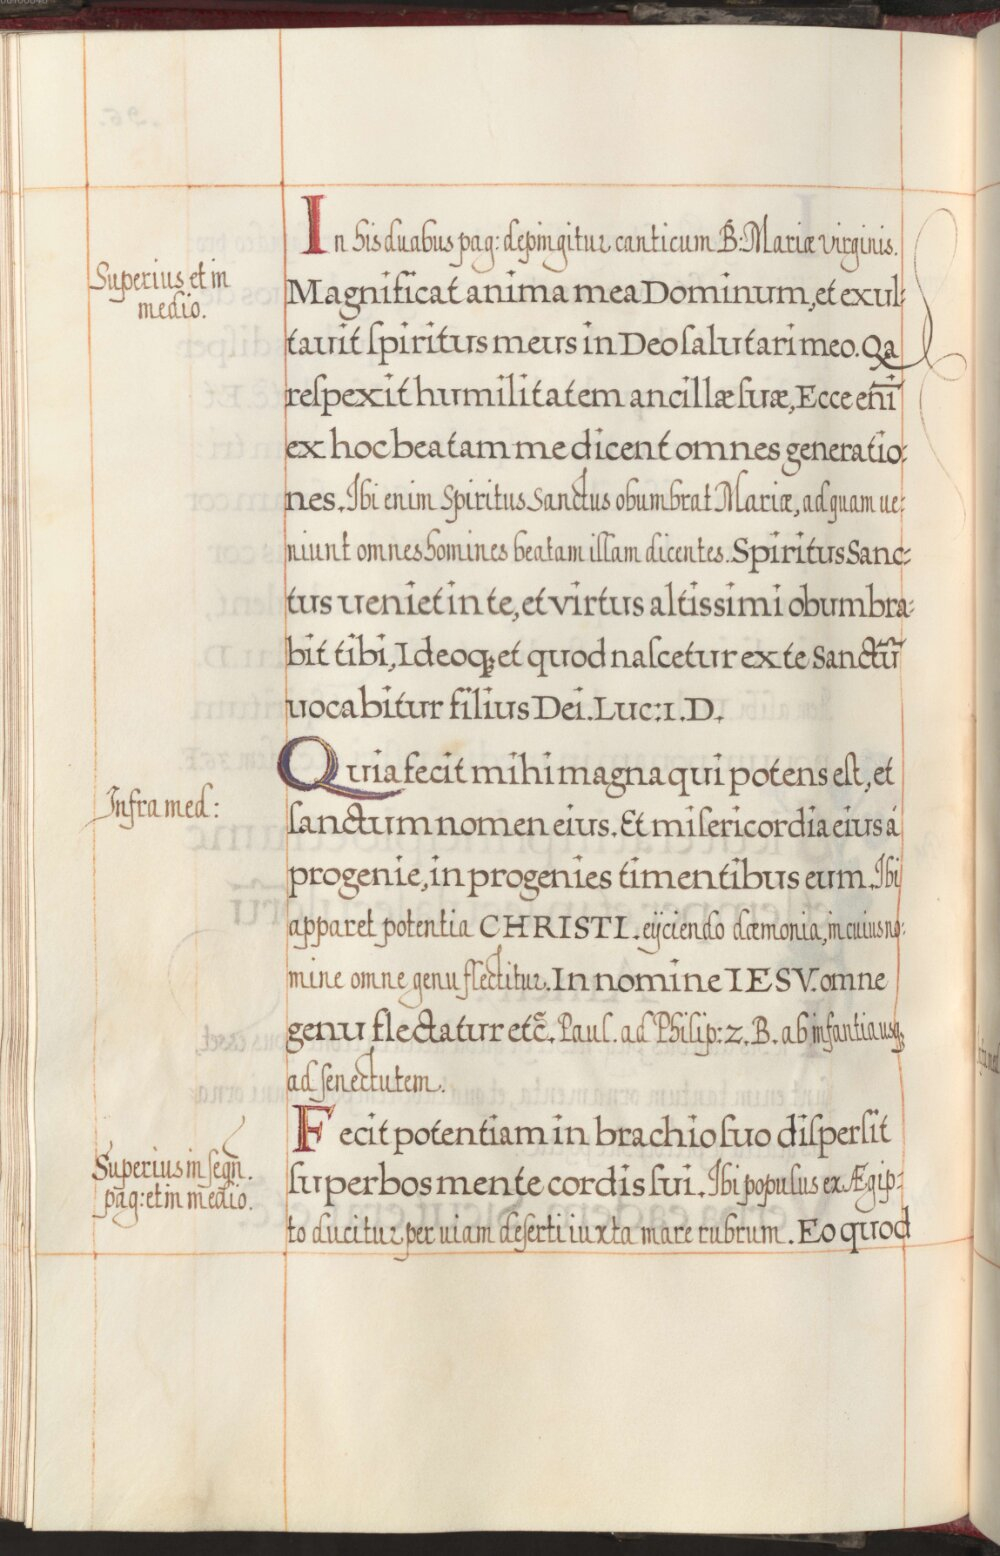 In his duabus pag: depingitur canticum B: Mariæ virginis.
Superius et in
medio.
Magnificat anima mea Dominum, et exul-
tavit spiritus meus in Deo salutari meo. Qa
respexit humilitatem ancillæ suæ, Ecce eni̅
ex hoc beatam me dicent omnes generatio-
nes. Ibi enim Spiritus Sanctus obumbrat Mariæ, ad quam ue-
niunt omnes homines beatam illam dicentes. Spiritus Sanc-
tus ueniet in te, et virtus altissimi obumbra-
bit tibi, Ideoq; et quod nascetur ex te Sanctu̅
uocabitur filius Dei. Luc: 1. D.
Infra med:
Quia fecit mihi magna qui potens est, et
sanctum nomen eius. Et misericordia eius á
progenie, in progenies timentibus eum. Ibi
apparet potentia CHRISTI. eijciendo dæmonia, in cuius no-
mine omne genu flectitur. In nomine IESV. omne
genu flectatur etc̅. Paul. ad Philip: 2. B. ab infantia usq;
ad senectutem.
Superius in seqn̅.
pag: et in medio.
Fecit potentiam in brachio suo dispersit
superbos mente cordis sui. Ibi populus ex Ægip-
to ducitur per uiam deserti iuxta mare rubrum. Eo quod